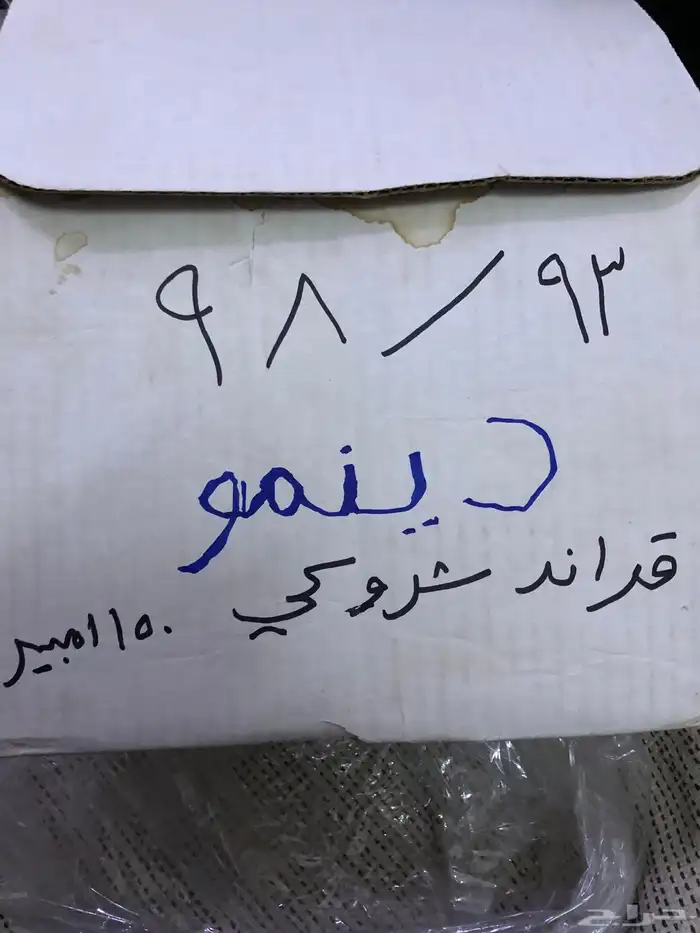 ٩٣ / ٩٨
دينمو
قراند شروكي ١٥٠ امبير
حراج